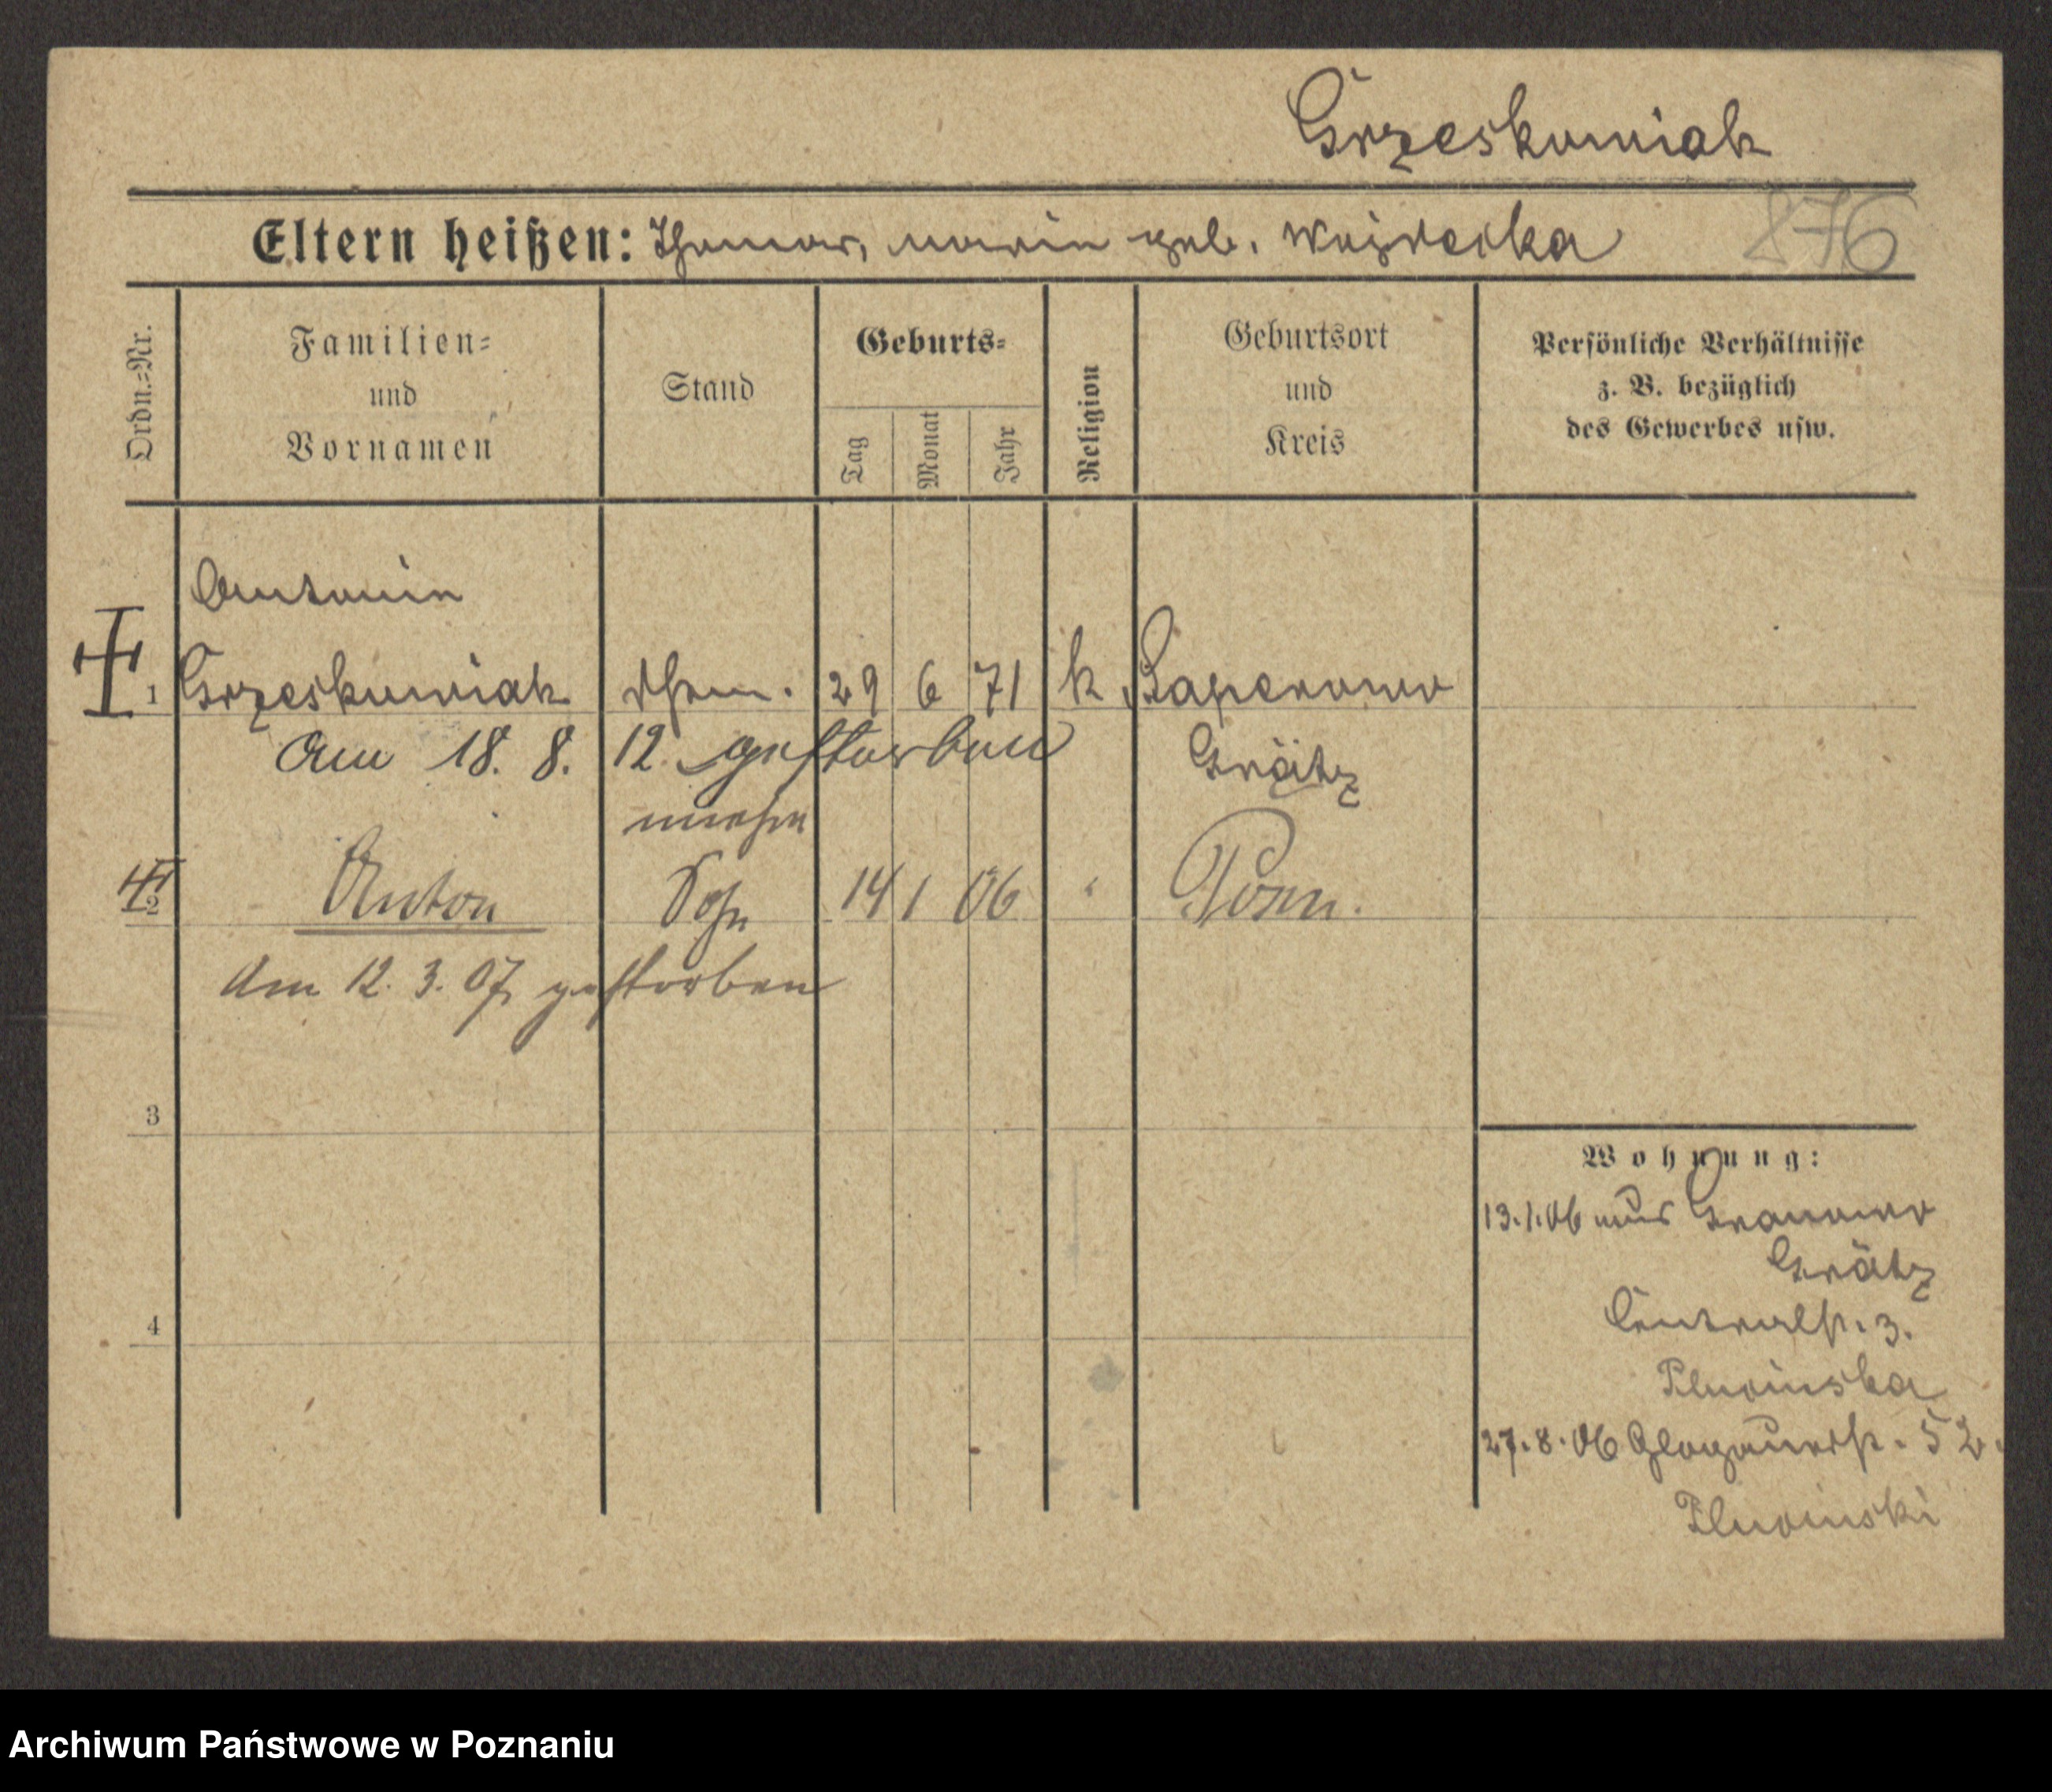 Grzeskowiak
Eltern heißen: Thomas, Marie geb. Wojdecka 876
Ordn.-Nr.
Familien-
und
Vornamen
Stand
Geburts-
Tag
Monat
Jahr
Religion
Geburtsort
und
Kreis
Persönliche Verhältnisse
z. B. bezüglich
des Gewerbes usw.
Antonie
1 Grzeskowiak 29 6 71 k Sapowowo
Am 18. 8. 12. gestorben Grätz
unehel
2 Anton Sohn 14 1 06 " Posen.
Am 12. 3. 07 gestorben
3
4
Wohnung:
13.1.06 aus Granowo
Grätz
Centralstr. 3.
Pluvinska
27.8.06 Glogauerstr. 52.
Pluvinski
Archiwum Państwowe w Poznaniu